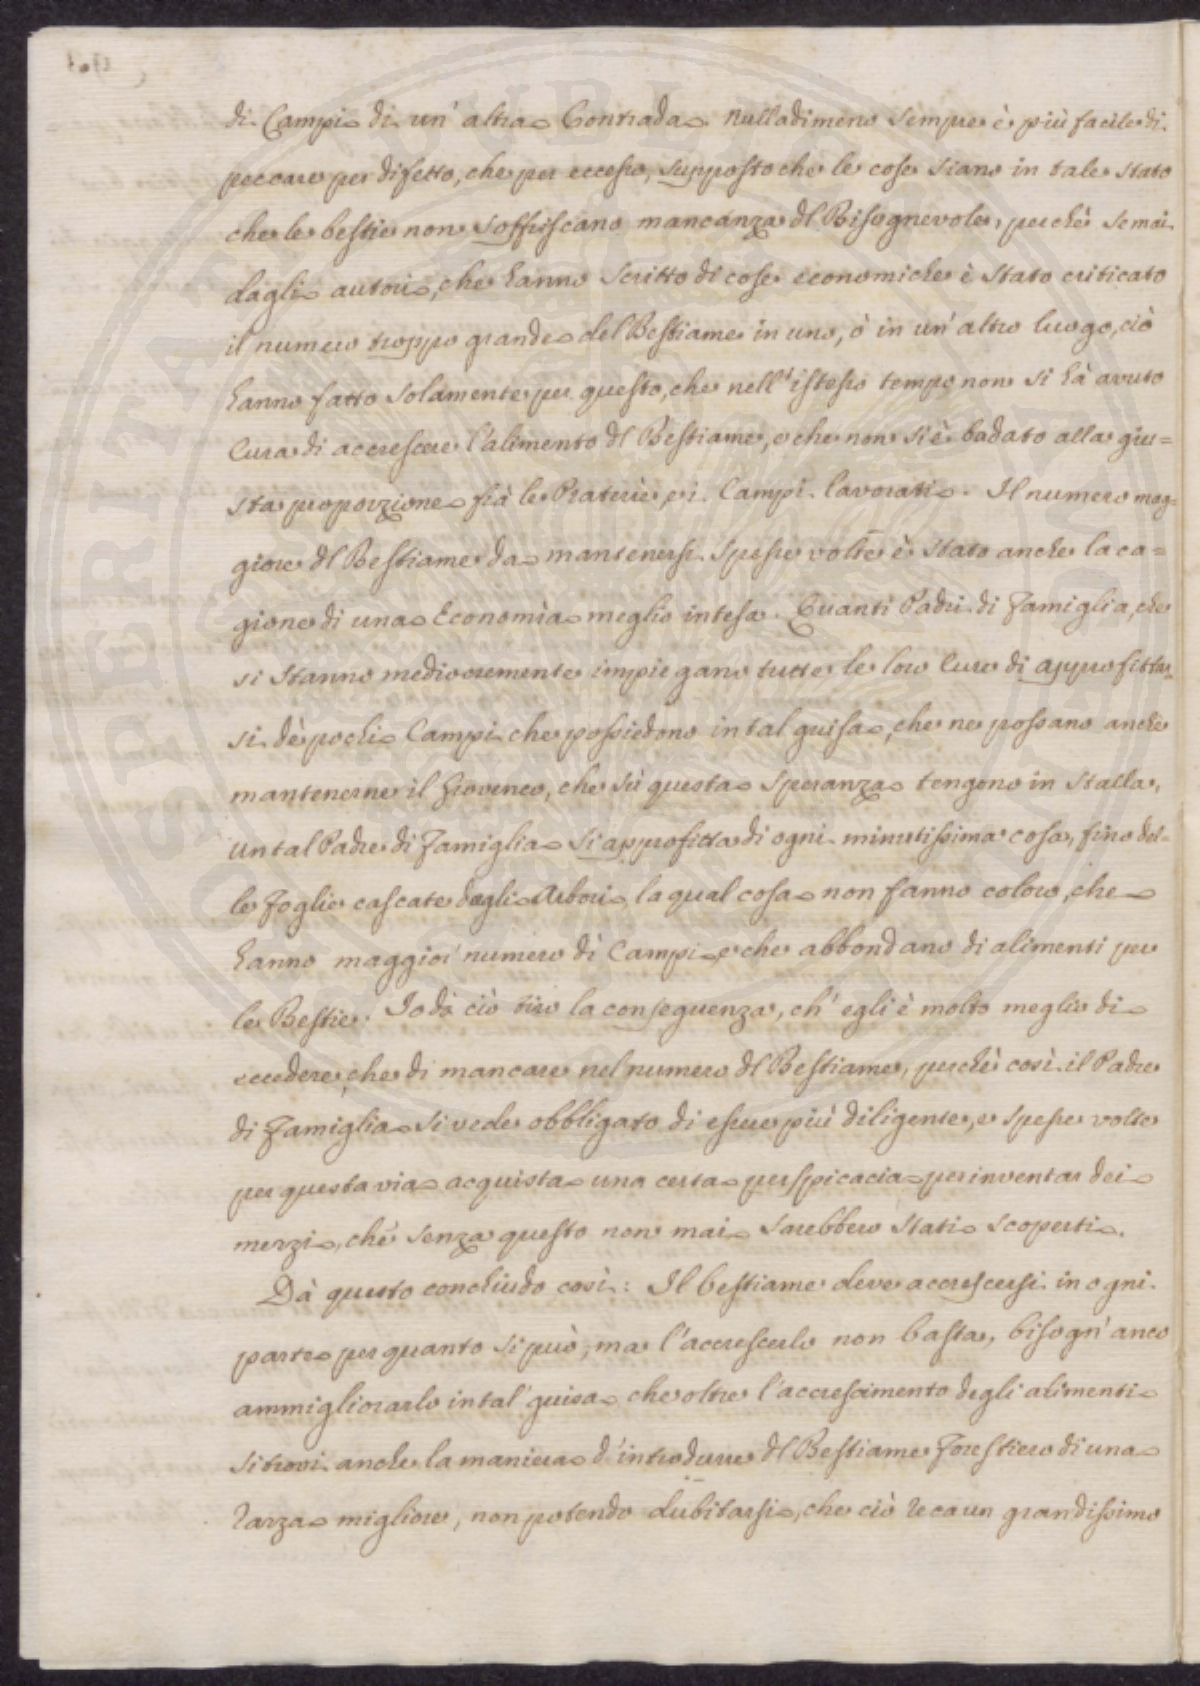 di Campi di un' altra Contrada. Nulladimeno sempre è più facile di
peccare per difetto, che per eccesso, supposto che le cose siano in tale stato
che le bestie non soffriscano mancanza dl Bisognevole, perchè se mai
dagli autori, che hanno scritto di cose economiche è stato criticato
il numero troppo grande del Bestiame in uno, ò in un' altro luogo, ciò
hanno fatto solamente per questo, che nell' istesso tempo non si hà avuto
Cura di accrescere l'alimento dl Bestiame, e che non si è badato alla giu=
sta proporzione frà le Praterie, e i Campi lavorati. Il numero mag=
giore dl Bestiame da mantenersi spesse volte è stato anche la ca=
gione di una Economia meglio intesa. Quanti Padri di Famiglia, che
si stanno mediocremente impiegano tutte le loro Cure di approfittar=
si dè pochi Campi che possiedono in tal guisa, che ne possano anche
mantenerne il Giovenco, che sù questa speranza tengono in stalla,
un tal Padre di Famiglia si approfitta di ogni minutissima cosa, fino del=
le Foglie cascate dagli Arbori la qual cosa non fanno coloro, che
hanno maggior numero di Campi, e che abbondano di alimenti per
le Bestie. Io dà ciò tiro la conseguenza, ch' egli è molto meglio di
eccedere, che di mancare nel numero dl Bestiame, perchè così il Padre
di Famiglia si vede obbligato di essere più diligente, e spesse volte
per questa via acquista una certa perspicacia per inventar dei
mezzi, che senza questo non mai sarebbero stati scoperti.
Dà questo conchiudo così: Il bestiame deve accrescersi in ogni
parte per quanto si può, ma l'accrescerlo non basta, bisogn' anco
ammigliorarlo in tal' guisa che oltre l'accrescimento degli alimenti
si trovi anche la maniera d' introdurre dl Bestiame Forestiero di una
Razza migliore, non potendo dubitarsi, che ciò reca un grandissimo